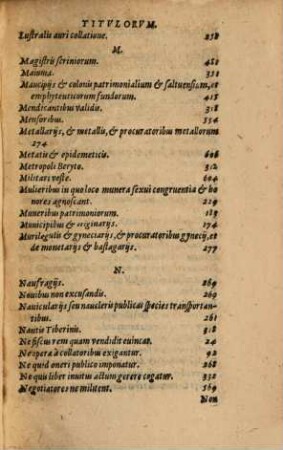 TITVLORVM.
Lustralis auri collatione. 258
M.
Magistris scriniorum. 481
Maiuma. 331
Mancipijs & colonis patrimonialium & saltuensium, et
emphyteuticorum fundorum. 415
Mendicantibus validis. 318
Mensoribus. 554
Metallarijs, & metallis, & procuratoribus metallorum
274
Metatis & epidemeticis. 606
Metropoli Beryto. 312
Militari veste. 604
Mulieribus in quo loco munera sexui congruentia & ho
nores agnoscant. 229
Muneribus patrimoniorum. 189
Municipibus & originarijs. 174
Murilegulis & gyneciarijs, & procuratoribus gynecij, et
de monetarijs & bastagarijs. 277
N.
Naufragijs. 269
Nauibus non excusandis. 269
Nauicularijs seu naucleris publicas species transportan-
tibus. 261
Nautis Tiberinis. 318
Ne fiscus rem quam vendidit euincat. 24
Ne opera à collatoribus exigantur. 92
Ne quid oneri publico imponatur. 268
Ne quis liber inuitus actum gerere cogatur. 332
Negotiatores ne militent. 569
Non